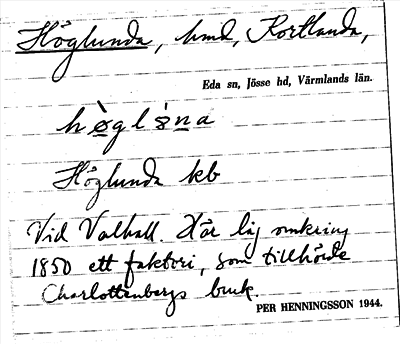 Höglunda, hmd, Kortlanda,
Eda sn, Jösse hd, Värmlands län.
Höglunda kb
Vid Valhall. Här låg omkring
1850 ett faktori, som tillhörde
Charlottenbergs bruk.
PER HENNINGSSON 1944.